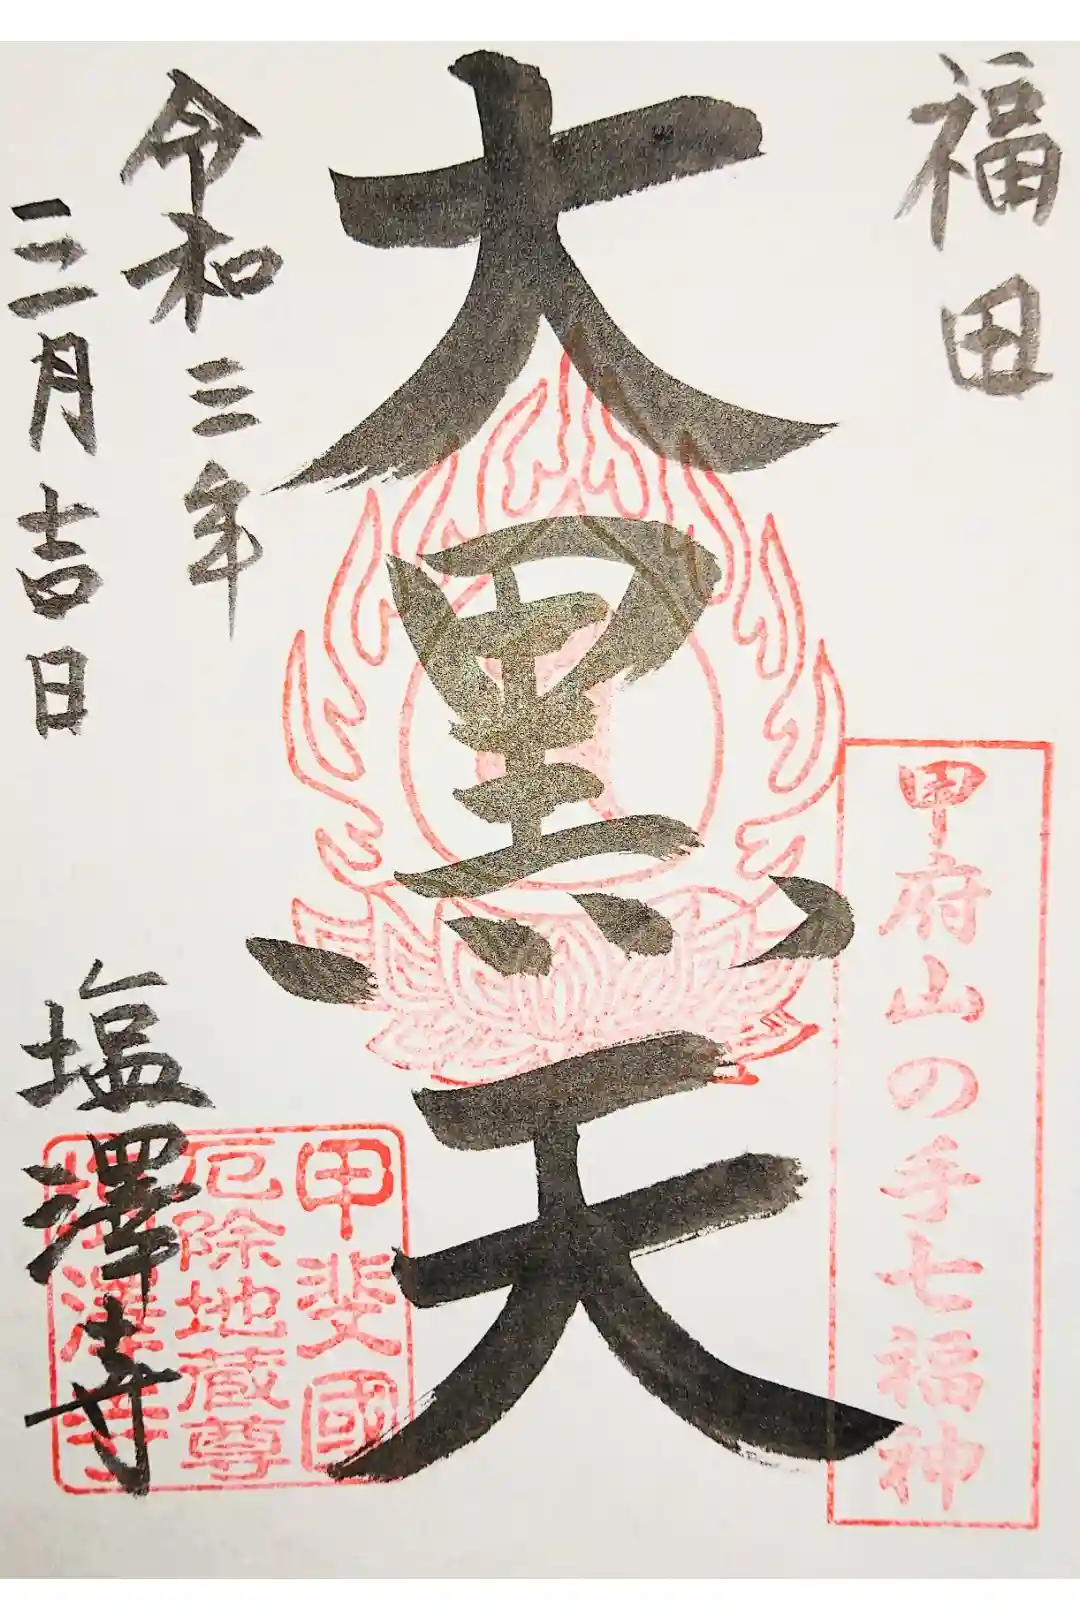 福田
甲府山の手七福神
大黒天
令和三年
三月吉日
塩澤寺
甲斐國
厄除地蔵尊
塩澤寺